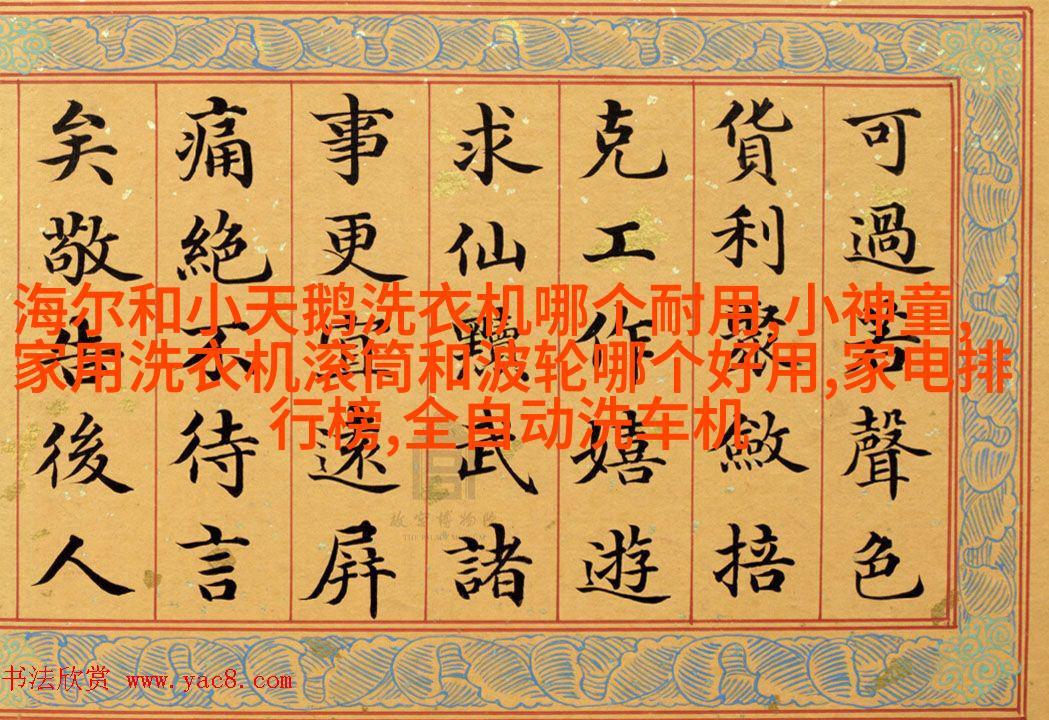 可過聲色
貨利聚斂掊
克工作嬉遊
求仙黷武諸
事更遠屏
痛絕不待言
矣敬告後人
海尔和小天鹅洗衣机哪个耐用,小神童,
家用洗衣机滚筒和波轮哪个好用,家电排
行榜,全自动洗车机
故宫博物院
书法欣赏 www.yac8.com